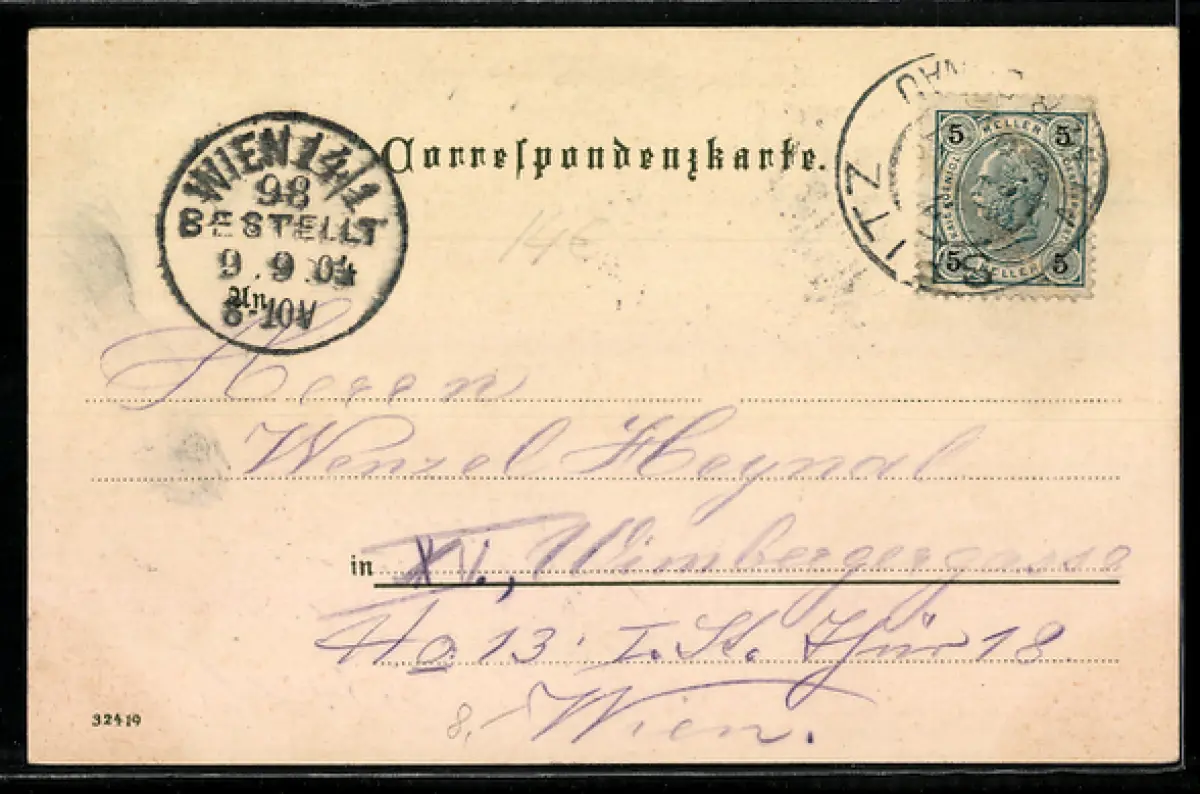 Correspondenzkarte.
WIEN 14/1
98
BESTELLT
9.9.04
An
8-10V
ITZ
5 HELLER 5
5 HELLER 5
14€
Herrn
Wenzel Heynal
in XV., Wimbergergasse
No 13. I. St. Thür 18.
8,- Wien.
32419